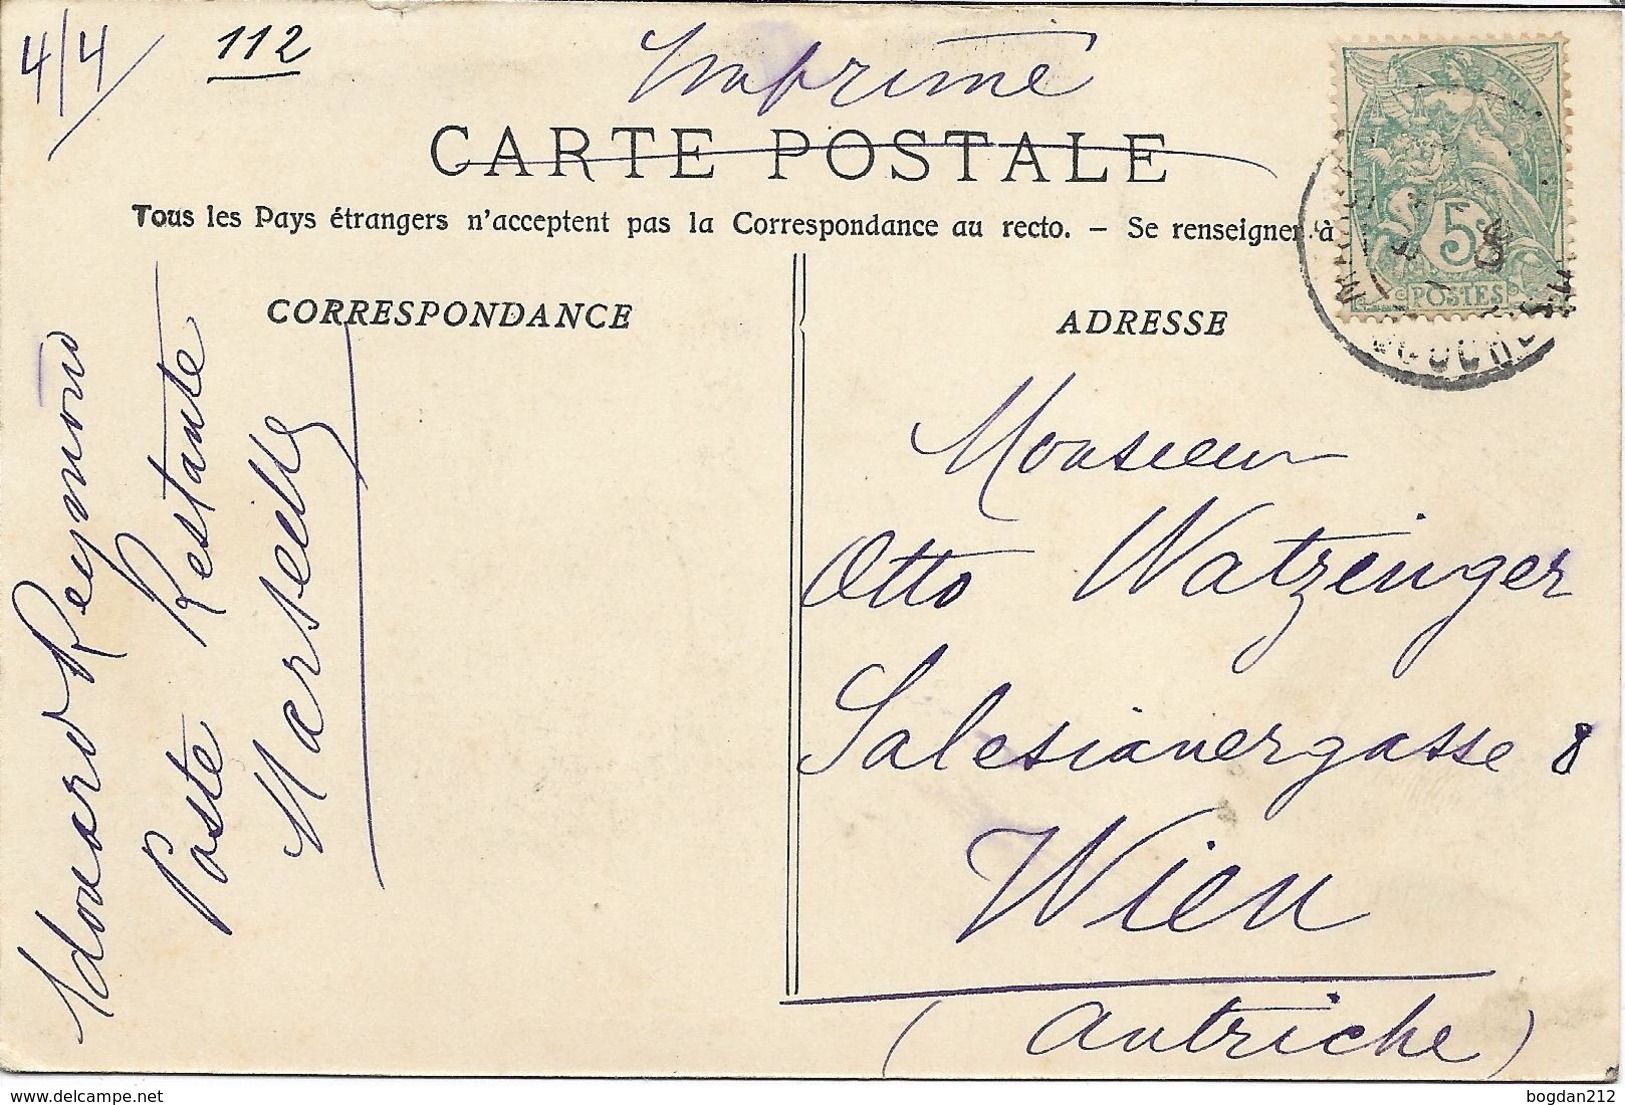 4/4
112
Imprimé
CARTE POSTALE
Tous les Pays étrangers n'acceptent pas la Correspondance au recto. – Se renseigner à
CORRESPONDANCE
ADRESSE
5
POSTES
Edouard Reymond
Poste Restante
Marseille
Monsieur
Otto Watzinger
Salesianergasse 8
Wien
(Autriche)
delcampe.net
bogdan212